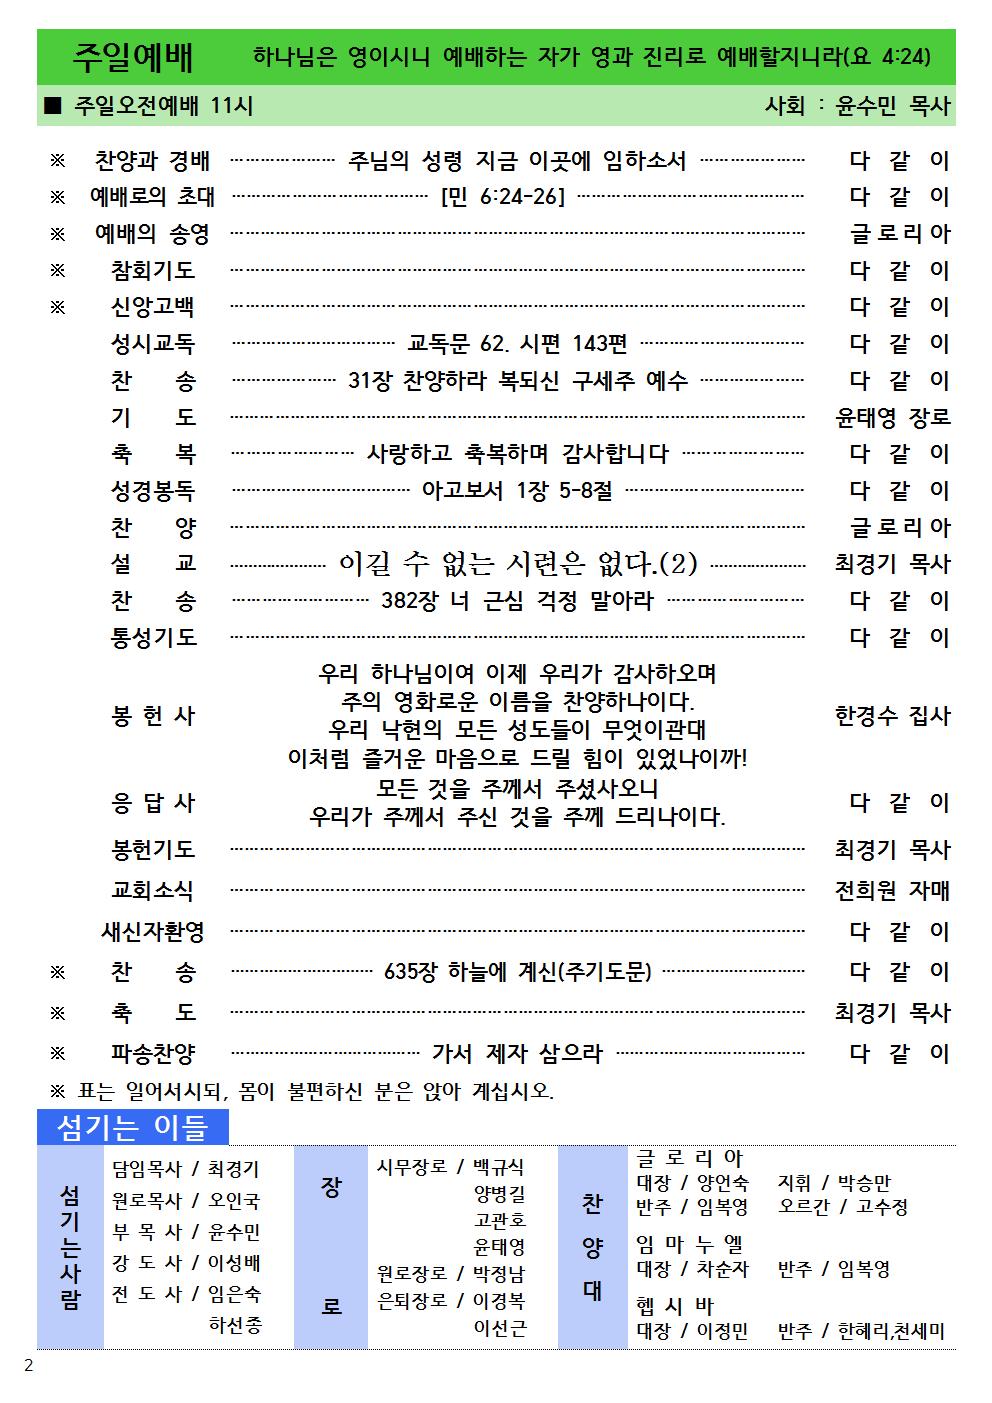 주일예배 하나님은 영이시니 예배하는 자가 영과 진리로 예배할지니라(요 4:24)
■ 주일오전예배 11시 사회 : 윤수민 목사
※ 찬양과 경배 ········ 주님의 성령 지금 이곳에 임하소서 ········ 다 같 이
※ 예배로의 초대 ········ [민 6:24-26] ········ 다 같 이
※ 예배의 송영 ········ 글로리아
※ 참회기도 ········ 다 같 이
※ 신앙고백 ········ 다 같 이
성시교독 ········ 교독문 62. 시편 143편 ········ 다 같 이
찬 송 ········ 31장 찬양하라 복되신 구세주 예수 ········ 다 같 이
기 도 ········ 윤태영 장로
축 복 ········ 사랑하고 축복하며 감사합니다 ········ 다 같 이
성경봉독 ········ 야고보서 1장 5-8절 ········ 다 같 이
찬 양 ········ 글로리아
설 교 ········ 이길 수 없는 시련은 없다.(2) ········ 최경기 목사
찬 송 ········ 382장 너 근심 걱정 말아라 ········ 다 같 이
통성기도 ········ 다 같 이
우리 하나님이여 이제 우리가 감사하오며
주의 영화로운 이름을 찬양하나이다.
봉 헌 사 한경수 집사
우리 낙현의 모든 성도들이 무엇이관대
이처럼 즐거운 마음으로 드릴 힘이 있었나이까!
모든 것을 주께서 주셨사오니
응 답 사 다 같 이
우리가 주께서 주신 것을 주께 드리나이다.
봉헌기도 ········ 최경기 목사
교회소식 ········ 전희원 자매
새신자환영 ········ 다 같 이
※ 찬 송 ········ 635장 하늘에 계신(주기도문) ········ 다 같 이
※ 축 도 ········ 최경기 목사
※ 파송찬양 ········ 가서 제자 삼으라 ········ 다 같 이
※ 표는 일어서시되, 몸이 불편하신 분은 앉아 계십시오.
섬기는 이들
섬기는사람
담임목사 / 최경기
원로목사 / 오인국
부 목 사 / 윤수민
강 도 사 / 이성배
전 도 사 / 임은숙
하선종
장로
시무장로 / 백규식
양병길
고관호
윤태영
원로장로 / 박정남
은퇴장로 / 이경복
이선근
찬양대
글 로 리 아
대장 / 양언숙 지휘 / 박승만
반주 / 임복영 오르간 / 고수정
임 마 누 엘
대장 / 차순자 반주 / 임복영
헵 시 바
대장 / 이정민 반주 / 한혜리,천세미
2